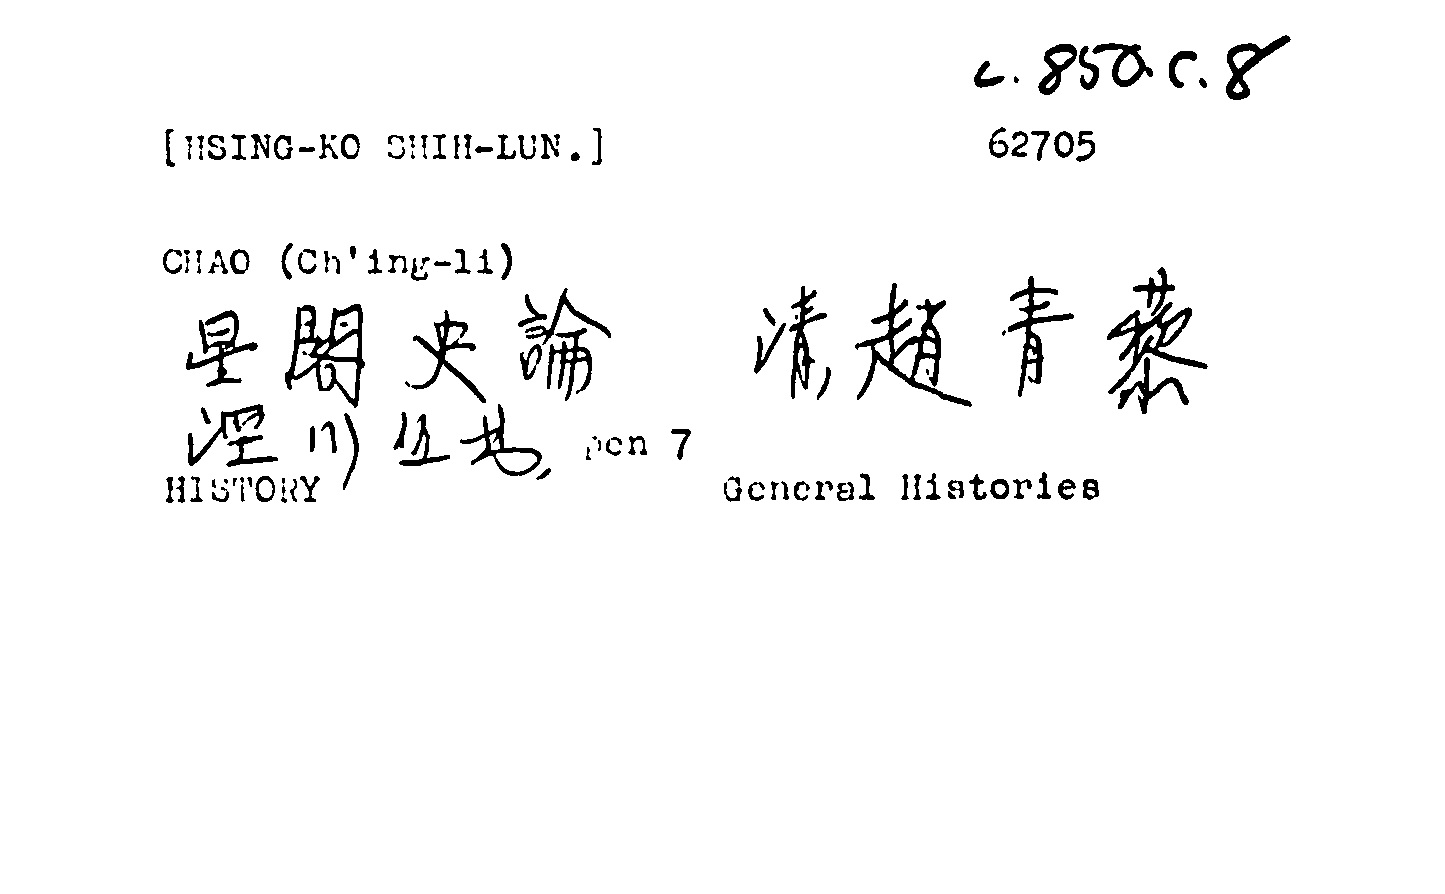 c. 850. c. 8
[HSING-KO SHIH-LUN.] 62705
CHAO (Ch'ing-li)
星閣史論 清,趙青藜
涇川丛书, pen 7
HISTORY General Histories